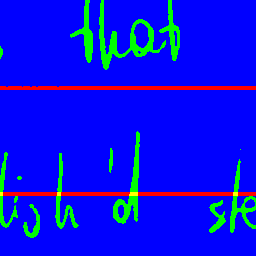 that
lish'd ste